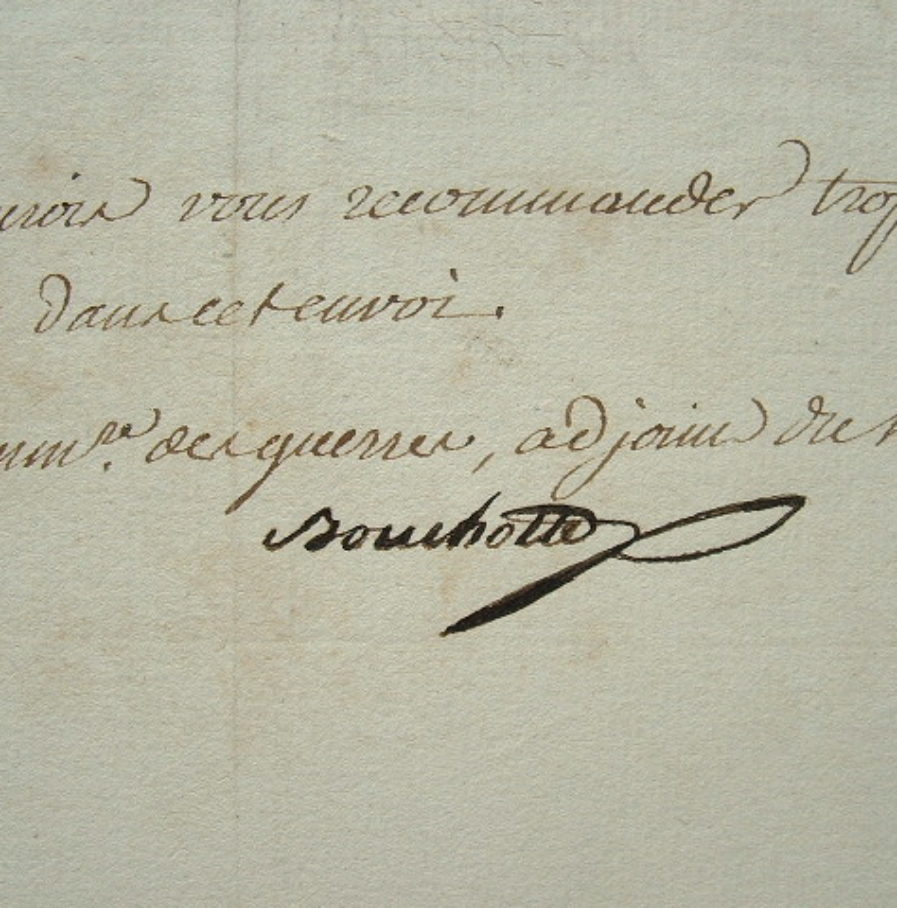 vous recommander trop
dans cet envoi.
des guerres, adjoint du
Bouchotte